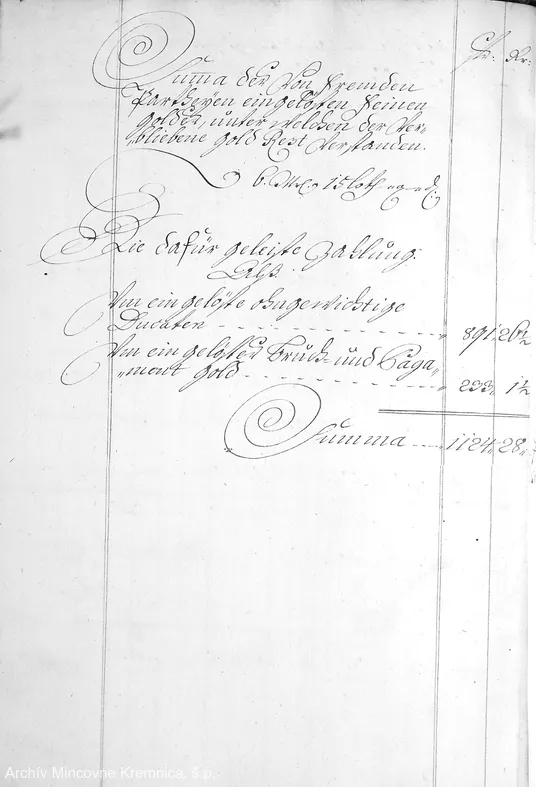 fr: Kr:
Summa der von fremden
Partheyen eingelösten feinen
Goldes, unter welchen der ver„
„bliebene Gold Rest verstanden.
6. M. 15 loth „ q „ d.
Die dafür geleiste Zahlung.
Alß.
Vm eingelöste ohngewichtige
Ducaten - - - - - „ 891 „ 26½
Vm eingelöstes Bruch- und Paga„
„ment Gold - - - - - „ 233 „ 1½
Summa - - - 1124 „ 28 „
Archív Mincovne Kremnica, š.p.